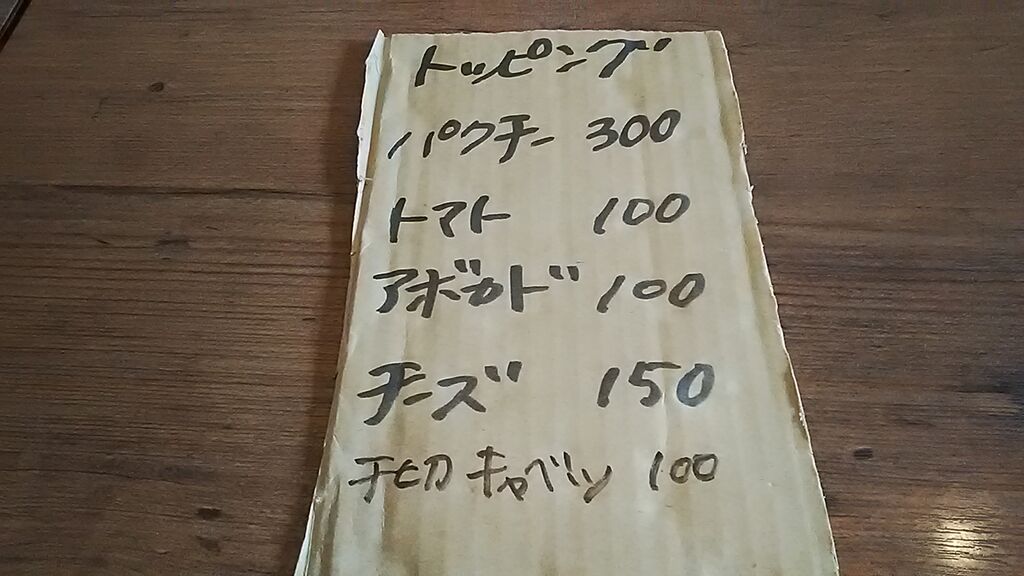 トッピング
パクチー 300
トマト 100
アボカド 100
チーズ 150
千切キャベツ 100